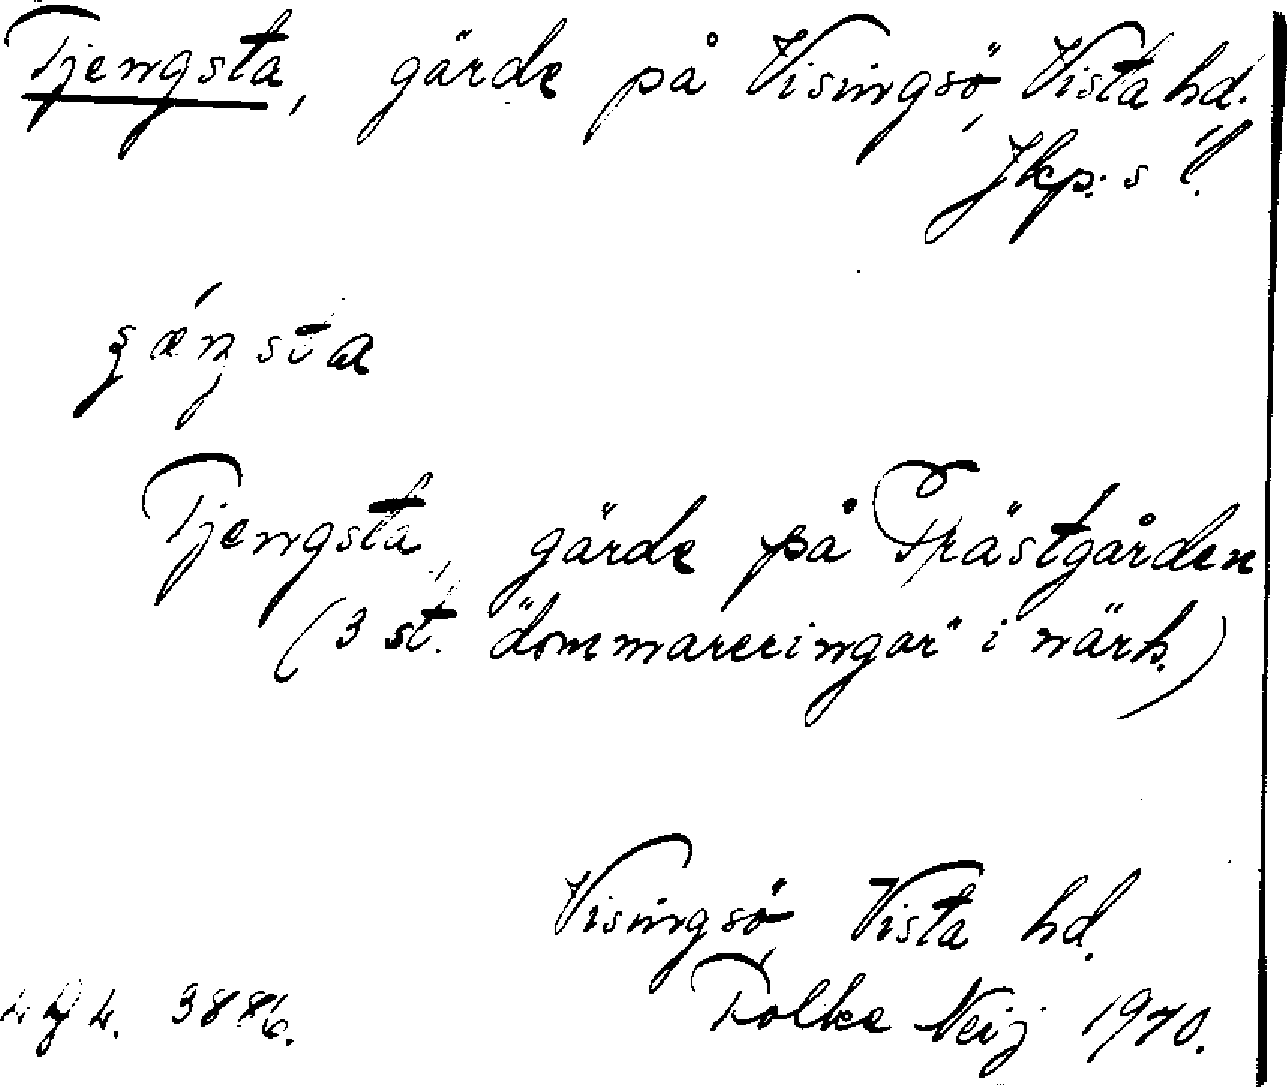 Tjengsta, gärde på Visingsö, Vista hd.
Jkp:s l.
Tjengsta, gärde på Prästgården
(3 st. "dommareringar" i närh.)
Visingsö, Vista hd.
Folke Neij 1970.
3886.